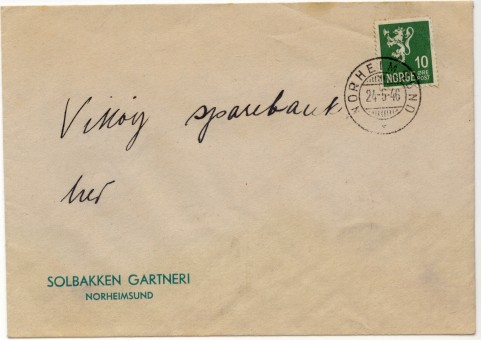 10
NORGE ØRE POST
NORHEIMSUND
24-5-46
Vikøy sparebank
her
SOLBAKKEN GARTNERI
NORHEIMSUND